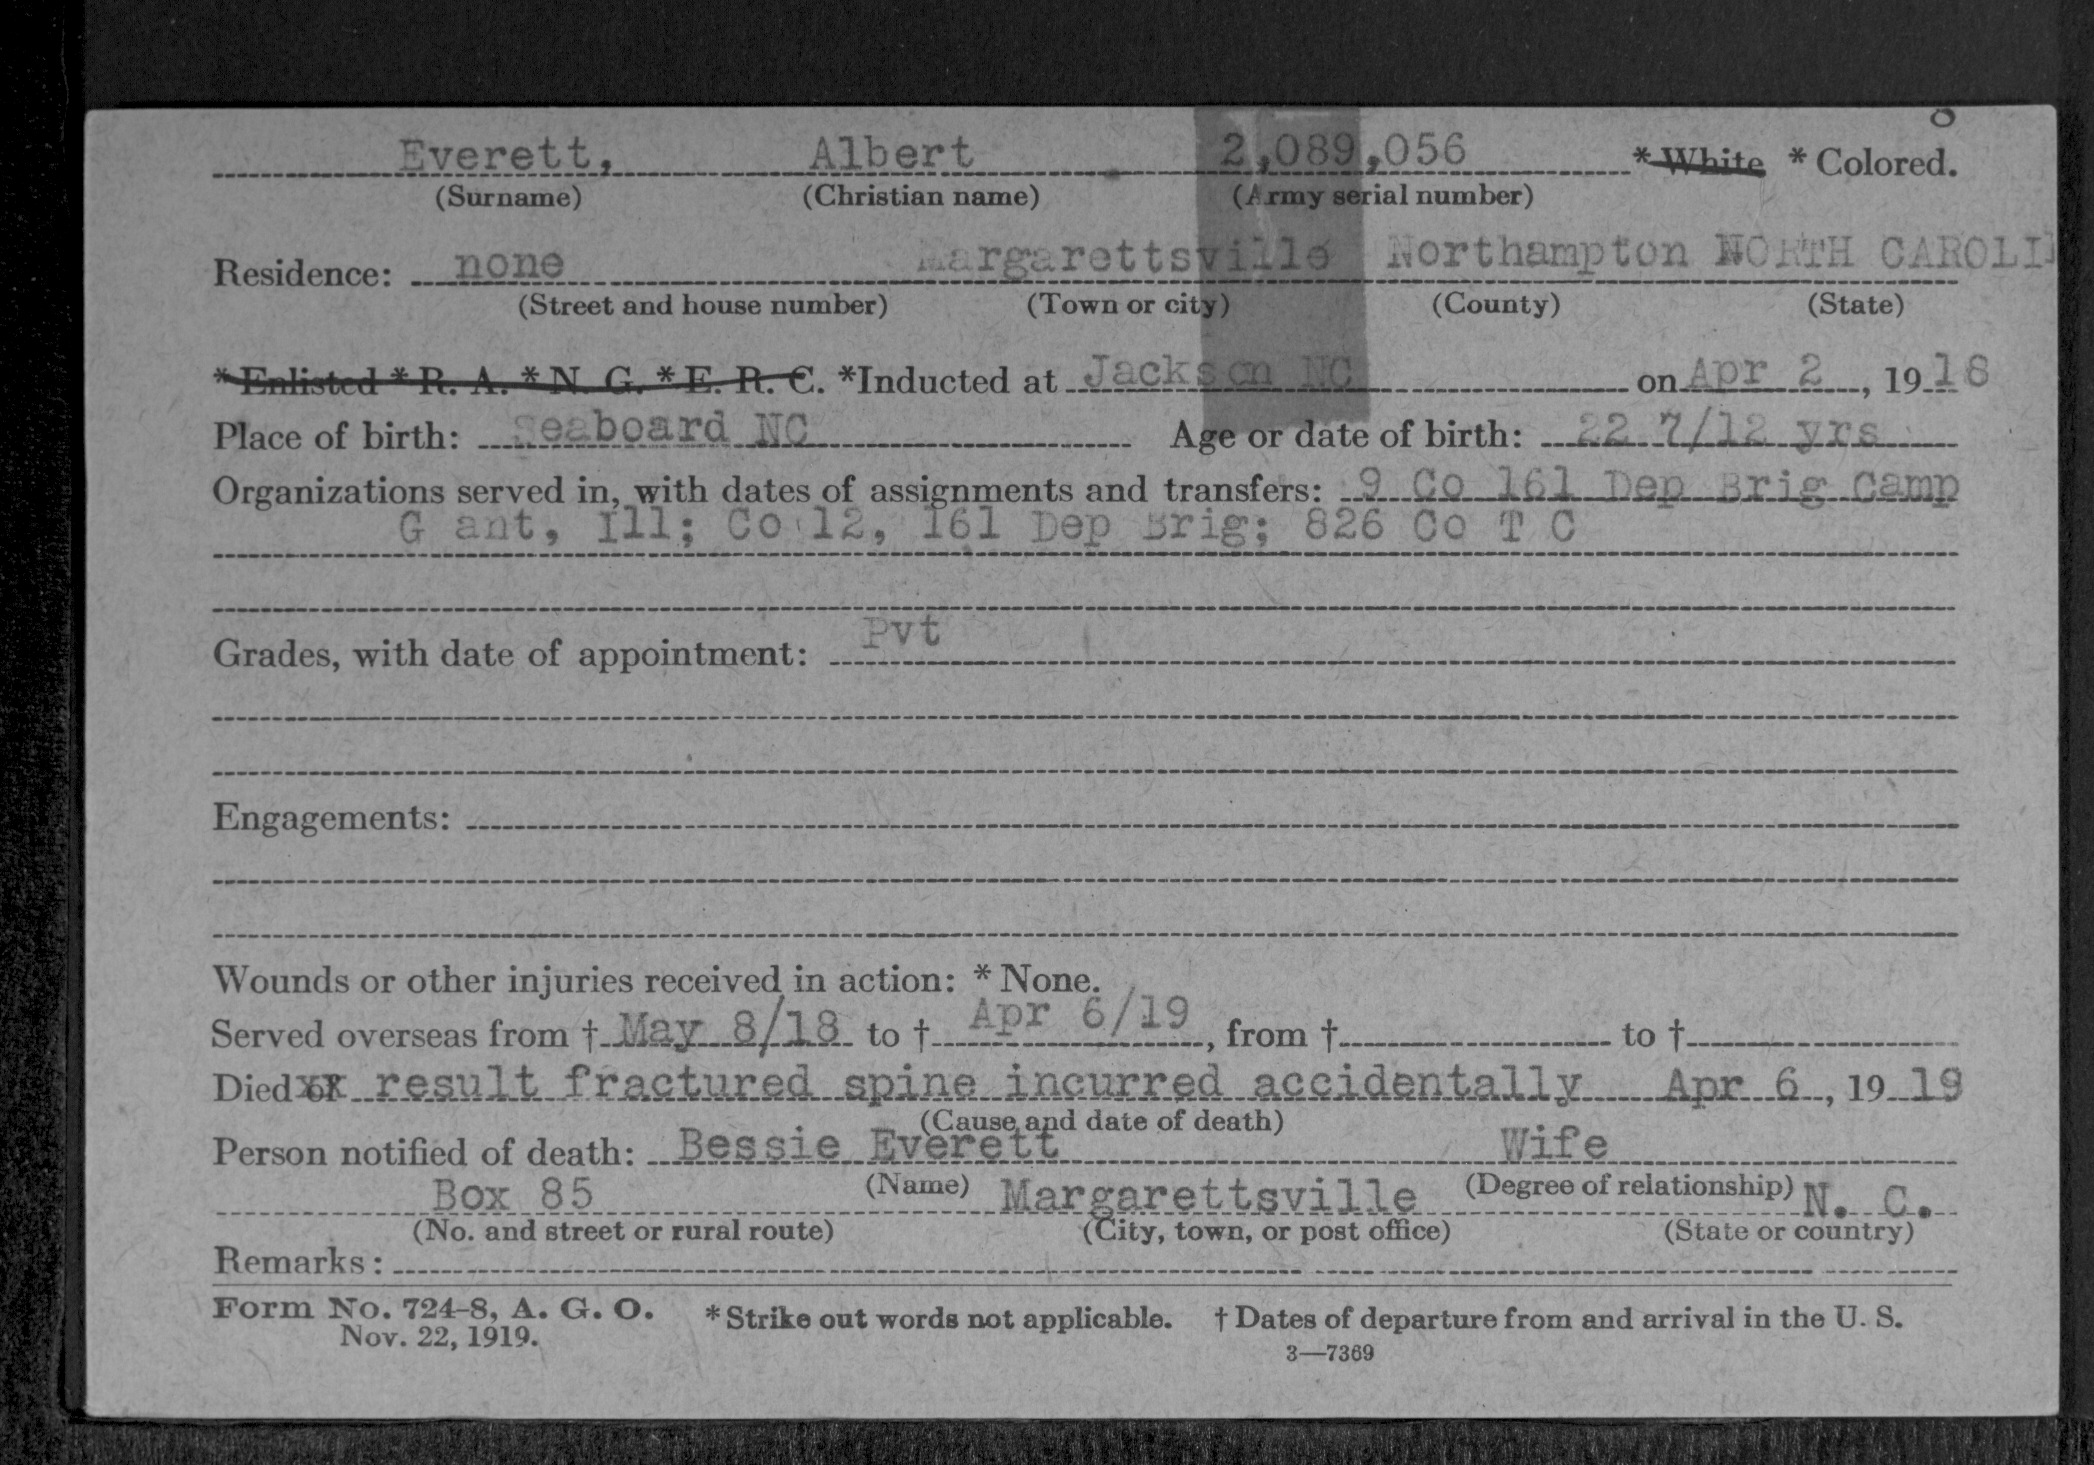 8
Everett, Albert 2,089,056 * White * Colored.
(Surname) (Christian name) (Army serial number)
Residence: none Margarettsville Northampton NORTH CAROLI
(Street and house number) (Town or city) (County) (State)
* Enlisted * R. A. * N. G. * E. R. C. *Inducted at Jackson NC on Apr 2, 1918
Place of birth: Seaboard NC Age or date of birth: 22 7/12 yrs
Organizations served in, with dates of assignments and transfers: 9 Co 161 Dep Brig Camp
G ant, Ill; Co 12, 161 Dep Brig; 826 Co T C
Grades, with date of appointment: Pvt
Engagements:
Wounds or other injuries received in action: * None.
Served overseas from † May 8/18 to † Apr 6/19, from † to †
Died of result fractured spine incurred accidentally Apr 6, 19 19
(Cause and date of death)
Person notified of death: Bessie Everett Wife
(Name) (Degree of relationship)
Box 85 Margarettsville N. C.
(No. and street or rural route) (City, town, or post office) (State or country)
Remarks:
Form No. 724-8, A. G. O. * Strike out words not applicable. † Dates of departure from and arrival in the U. S.
Nov. 22, 1919. 3—7369